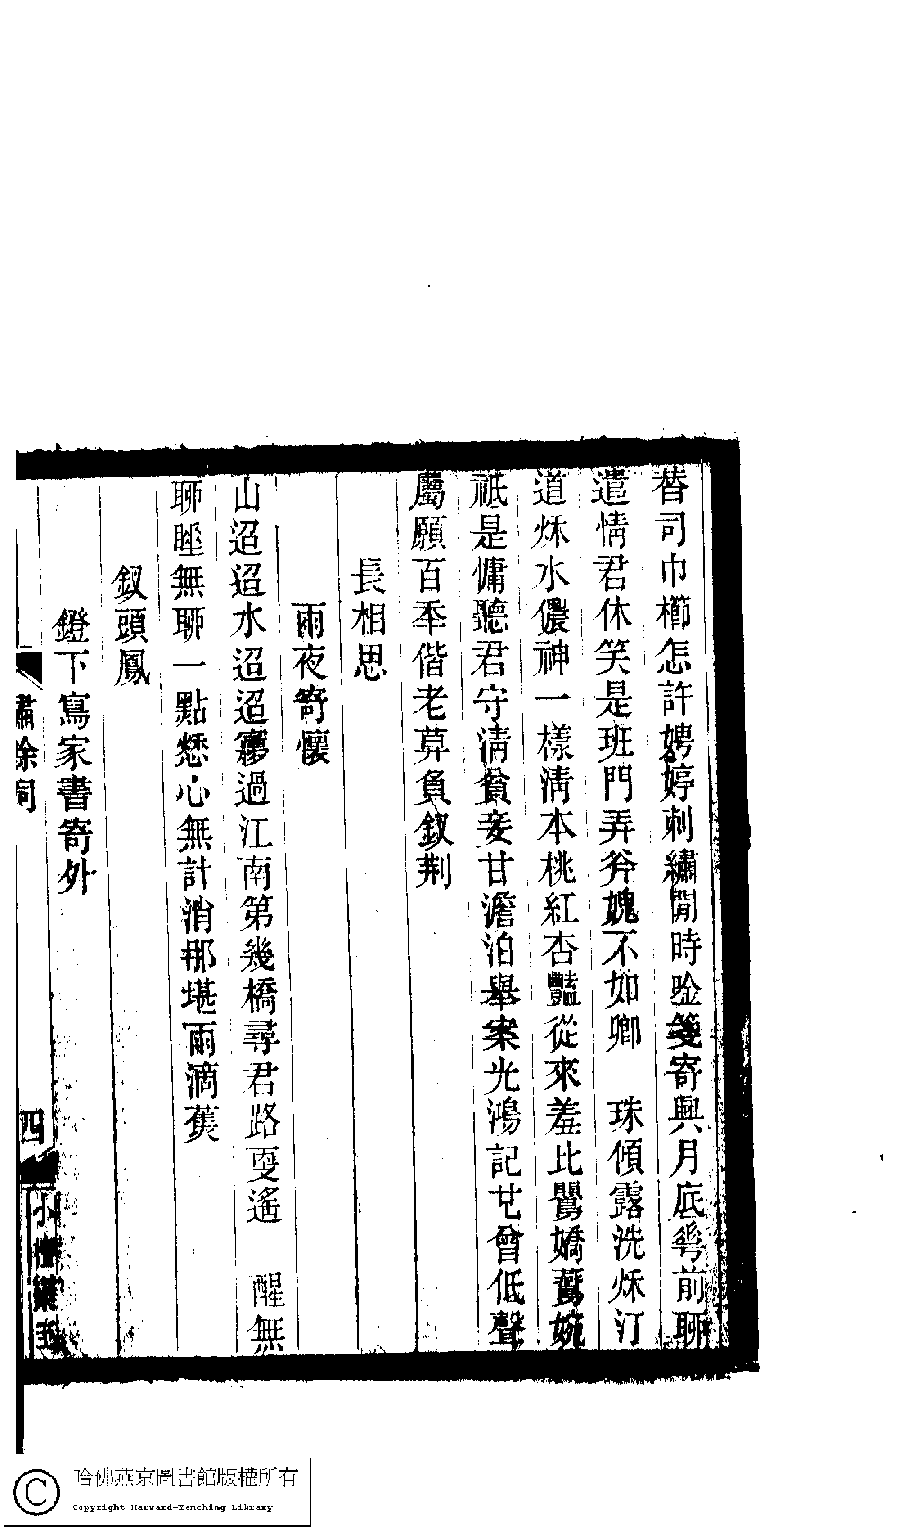 替司巾櫛怎許娉婷刺繡閒時唫箋寄興月底花前聊
遣情君休笑是班門弄斧媿不如卿　珠傾露洗秌汀
道秌水儂神一樣淸本桃紅杏豔從來羞比鸎嬌鷰婉
祗是慵聽君守淸貧妾甘澹泊舉案光鴻記㞢曾低聲
屬願百秊偕老莫負釵荆
長相思
雨夜寄懷
山迢迢水迢迢寱過江南第幾橋尋君路叓遙　醒無
聊睡無聊一點愁心無計消那堪雨滴蕉
釵頭鳳
鐙下寫家書寄外
繡餘詞
四
小檀欒室
哈佛燕京圖書館版權所有
Copyright Harvard-Yenching Library